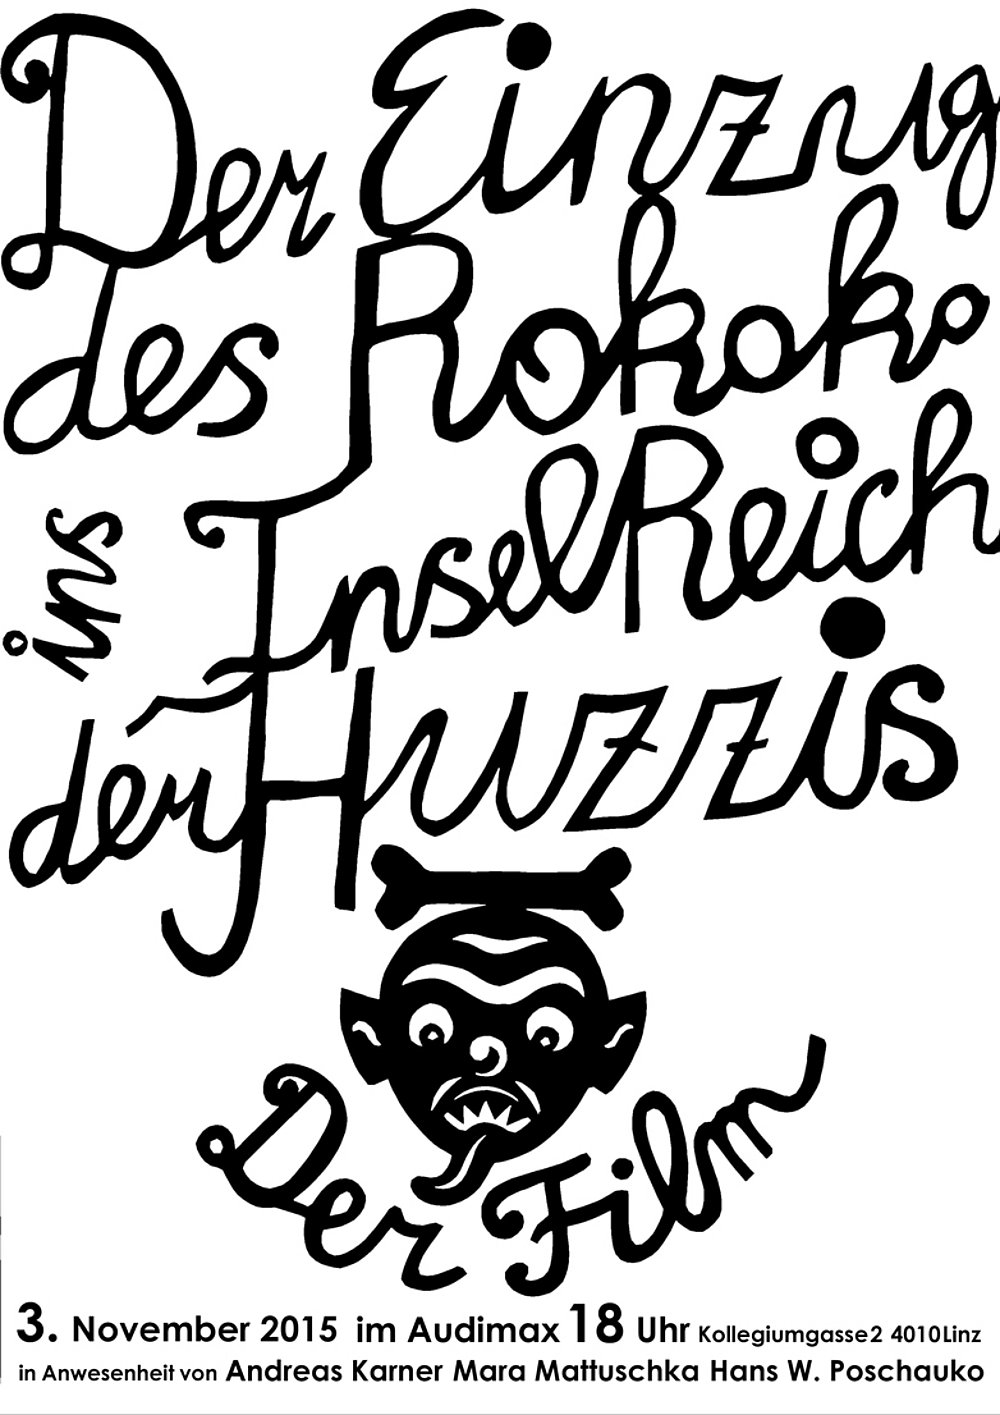 Der Einzug
des Rokoko
ins InselReich
der Huzzis
Der Film
3. November 2015 im Audimax 18 Uhr Kollegiumgasse2 4010Linz
in Anwesenheit von Andreas Karner Mara Mattuschka Hans W. Poschauko